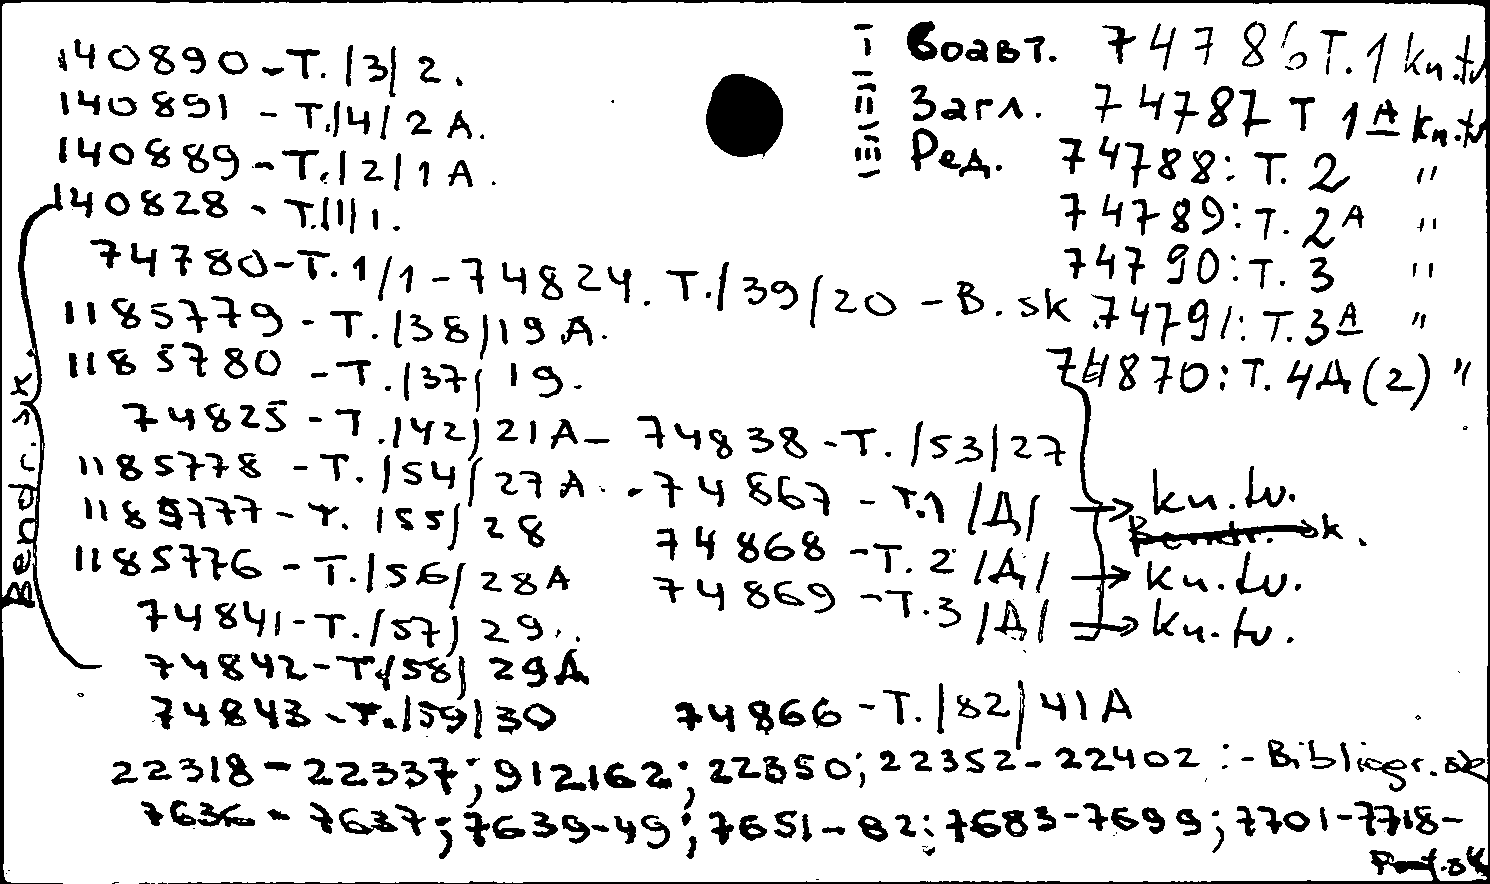 140890 - Т. /3/ 2.
140891 - Т./4/ 2 А.
140889 - Т./2/ 1 А.
140828 - Т./1/ 1.
74780 - Т. 1/1 - 74824. Т./39/20 - B. sk
1185779 - Т. /38/ 19 А.
1185780 - Т. /37/ 19.
74825 - Т. /42/ 21А - 74838 - Т. /53/27
1185778 - Т. /54/ 27А. - 74867 - Т.1 /Д/ → kn. tv.
1185777 - Т. /55/ 28
1185776 - Т. /56/ 28А
74868 - Т. 2 /Д/ → kn. tv.
74841 - Т. /57/ 29.
74869 - Т. 3 /Д/ → kn. tv.
74842 - Т./58/ 29А
74843 - Т./59/30
74866 - Т. /82/ 41 А
22318 - 22337; 912162; 22350; 22352 - 22402 : - Bibliogr. sk
7636 - 7637; 7639-49; 7651 - 82; 7683-7699; 7701-7718 -
Bendr. sk.
I Соавт. 74786 Т. 1 kn. tv
II Загл. 74787 Т 1А kn. tv
III Ред. 74788: Т. 2 "
74789: Т. 2А "
74790: Т. 3 "
74791: Т. 3А "
74870: Т. 4Д (2) "